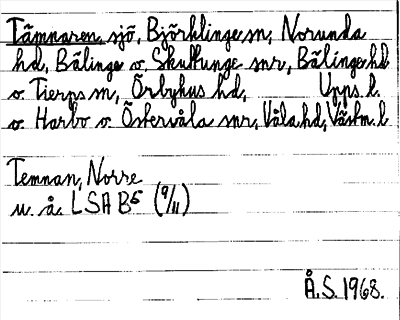 Tämnaren, sjö, Björklinge sn, Norunda
hd, Bälinge o. Skuttunge snr, Bälinge hd
o. Tierps sn, Örbyhus hd, Upps. l.
o. Harbo o. Östervåla snr, Våla hd, Västm. l.
Temnan, Norre
u. å. LSA B5 (9/11)
Å.S. 1968.